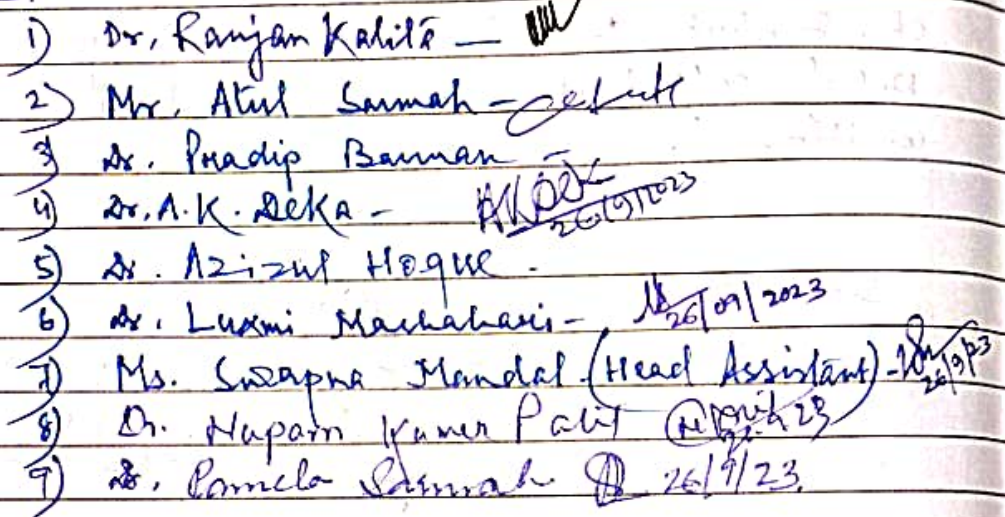 1) Dr. Ranjan Kalita —
2) Mr. Atul Sarmah -
3) Dr. Pradip Barman -
4) Dr. A.K. Deka - AKDeka 26/9/2023
5) Dr. Azizul Hoque -
6) Dr. Luxmi Machahari - 26/09/2023
7) Ms. Swapna Mandal (Head Assistant) - 26/9/23
8) Dr. Kumer Palit
9) Dr. Pamela Sarmah 26/9/23